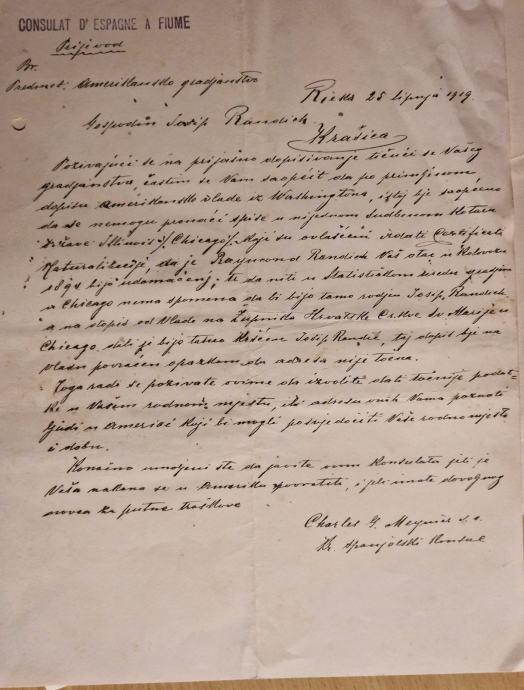 CONSULAT D'ESPAGNE À FIUME
Prijevod
Br.
Predmet: Amerikansko gradjanstvo
Rieka 25 lipnja 1919
Gospodin Josip Randich
Krašica
Pozivajući se na prijašno dopisivanje tičući se Vašeg
gradjanstva, častim se Vam saopćit da po primljenom
dopisu Amerikanske vlade iz Washingtona, istoj bje saopćeno
da se nemogu pronaći spise u nijednom sudbenom kotaru
države Illinois /Chicago/ koji su ovlašćeni izdati Certificati
Naturalizacije, da je Raymond Randich Vaš otac u Kolovozu
189 bijo udamaćenj; te da niti u Statističkom uredu gradjan
u Chicago nema spomena da bi bijo tamo rodjen Josip Randich
a na dopis od Vlade na Župnika Hrvatske Crkve Sv Marije u
Chicago dali je bijo tamo kršćen Josip Randić, taj dopis bje na
vladu povraćen opazkom da adresa nije točna.
Toga radi se pozivate ovime da izvolite dati točnije podat-
ke o Vašem rodnom mjestu, ili adresu onih Vama poznati
ljudi u Americi koji bi mogli posvjedočiti Vaše rodno mjesto
i dobu.
Konačno umoljeni ste da javite ovom Konsulatu jeli je
Vaša nakana se u Ameriku povratite, i jeli imate dovoljnog
novca za putne troškove
Charles G. Meynier s.r.
Kr. Španjolski Konsul